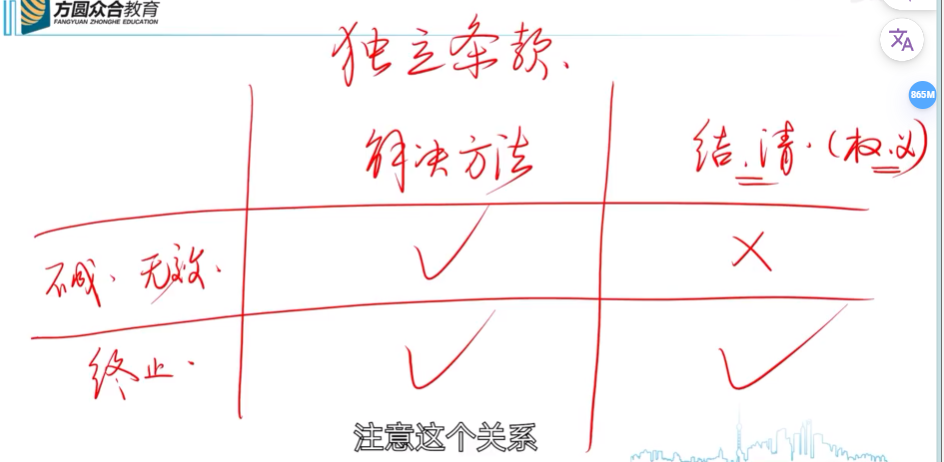 方圆众合教育
FANGYUAN ZHONGHE EDUCATION
865M
独立条款、
解决方法 结.清.(权.义)
不成、无效.
终止.
注意这个关系